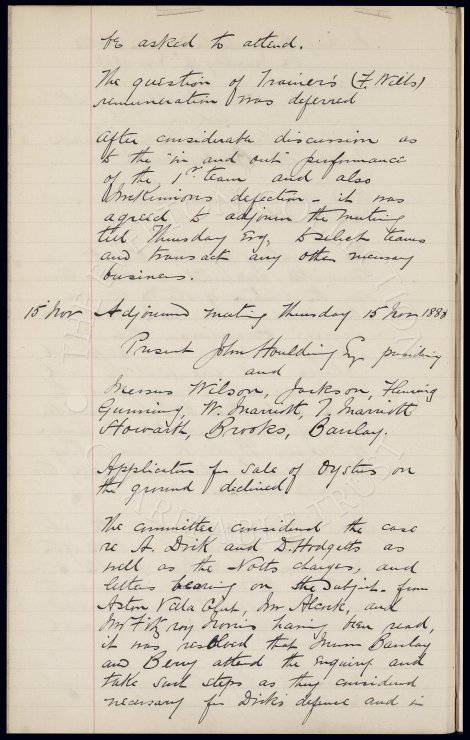 be asked to attend.
The question of Trainer's (F. Wells)
remuneration was deferred
After considerable discussion as
to the "in and out" performance
of the 1st team and also
McKinnons defection - it was
agreed to adjourn the meeting
till Thursday Evg, to select teams
and transact any other necessary
business.
15 Nov Adjourned meeting Thursday 15 Nov 1888
Present John Houlding Esq presiding
and
Messrs Wilson, Jackson, Fleming
Gunning, W. Marriott, T. Marriott
Howarth, Brooks, Barclay.
Application for sale of Oysters on
the ground declined
The committee considered the case
re A. Dick and D. Hodgetts as
well as the Notts charges, and
letters bearing on the subject - from
Aston Villa Club, Mr Alcock, and
Mr Fitzroy Norris having been read,
it was resolved that Messrs Barclay
and Berry attend the enquiry and
take such steps as they considered
necessary for Dicks defence and in